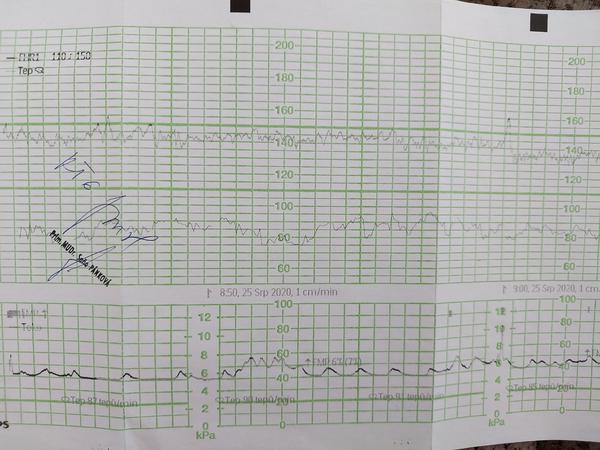 FHR1 110 / 150
Tep
200
180
160
140
120
100
80
60
200
180
160
140
120
100
80
60
Prim. MUDr. PÁNKOVÁ
8:50, 25 Srp 2020, 1 cm/min
9:00, 25 Srp 2020, 1 cm
Toko
12
10
8
6
4
2
0
kPa
100
80
60
40
20
0
12
10
8
6
4
2
0
kPa
100
80
60
40
20
0
FMP 6% (7%)
Tep 87 tepů/min
Tep 90 tepů/min
Tep 91 tepů/min
Tep 85 tepů/min